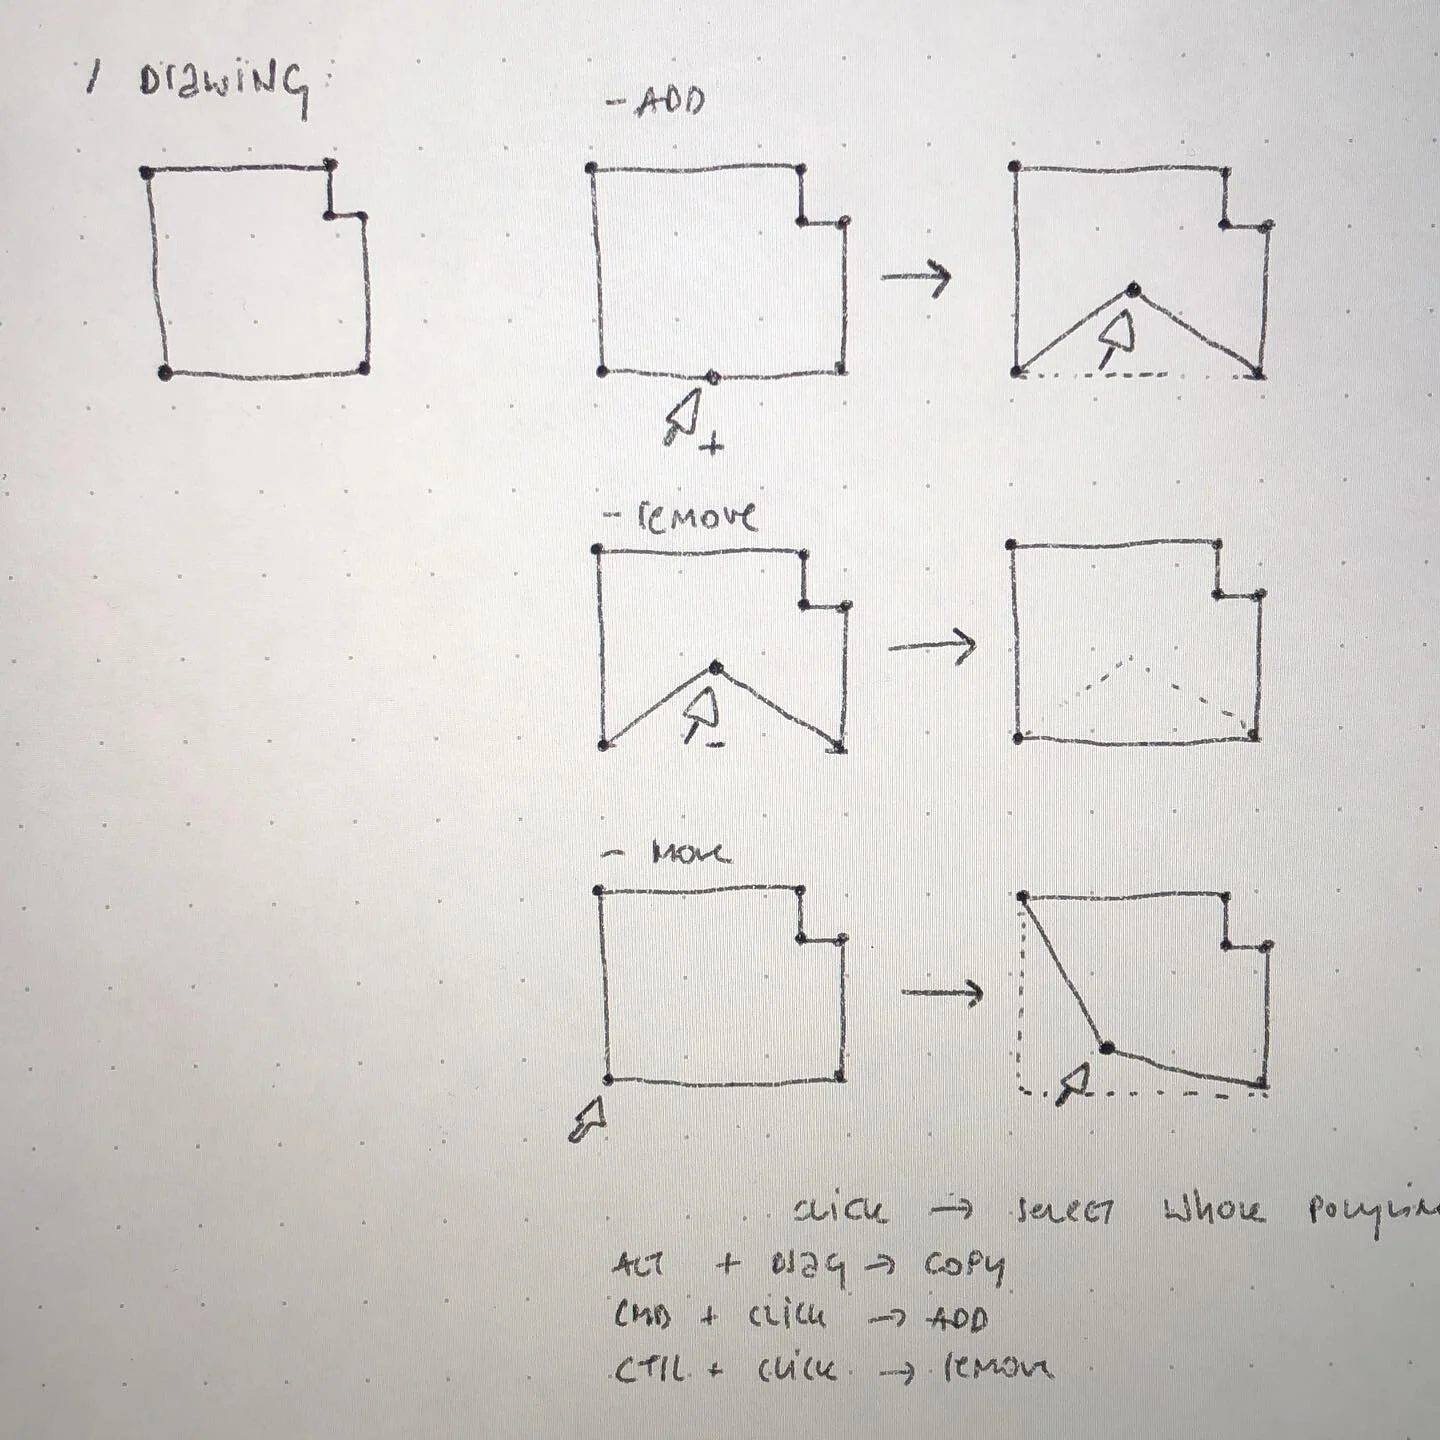 / Drawing:
- ADD
+
- remove
-
- Move
click → select whole polylin
ALT + Drag → COPY
CMD + click → ADD
CTRL + click → remove